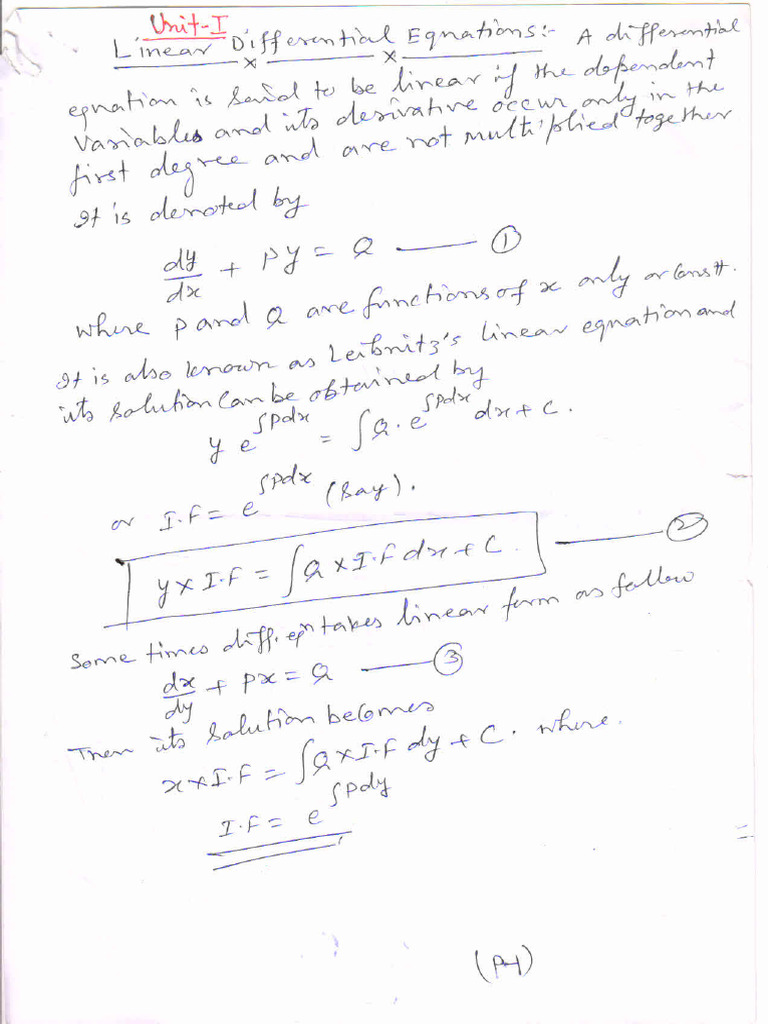 Unit-I
Linear Differential Equations:- A differential
equation is said to be linear if the dependent
variables and its derivative occur only in the
first degree and are not multiplied together
It is denoted by
dy/dx + Py = Q —— ①
where P and Q are functions of x only or Constt.
It is also known as Leibnitz's linear equation and
its solution can be obtained by
y e^∫Pdx = ∫Q. e^∫Pdx dx + C.
or I.F = e^∫Pdx (Say).
y x I.F = ∫Q x I.F dx + C. —— ②
Some times diff. eqn takes linear form as follow
dx/dy + Px = Q —— ③
Then its solution becomes
x x I.F = ∫Q x I.F dy + C. where.
I.F = e^∫Pdy